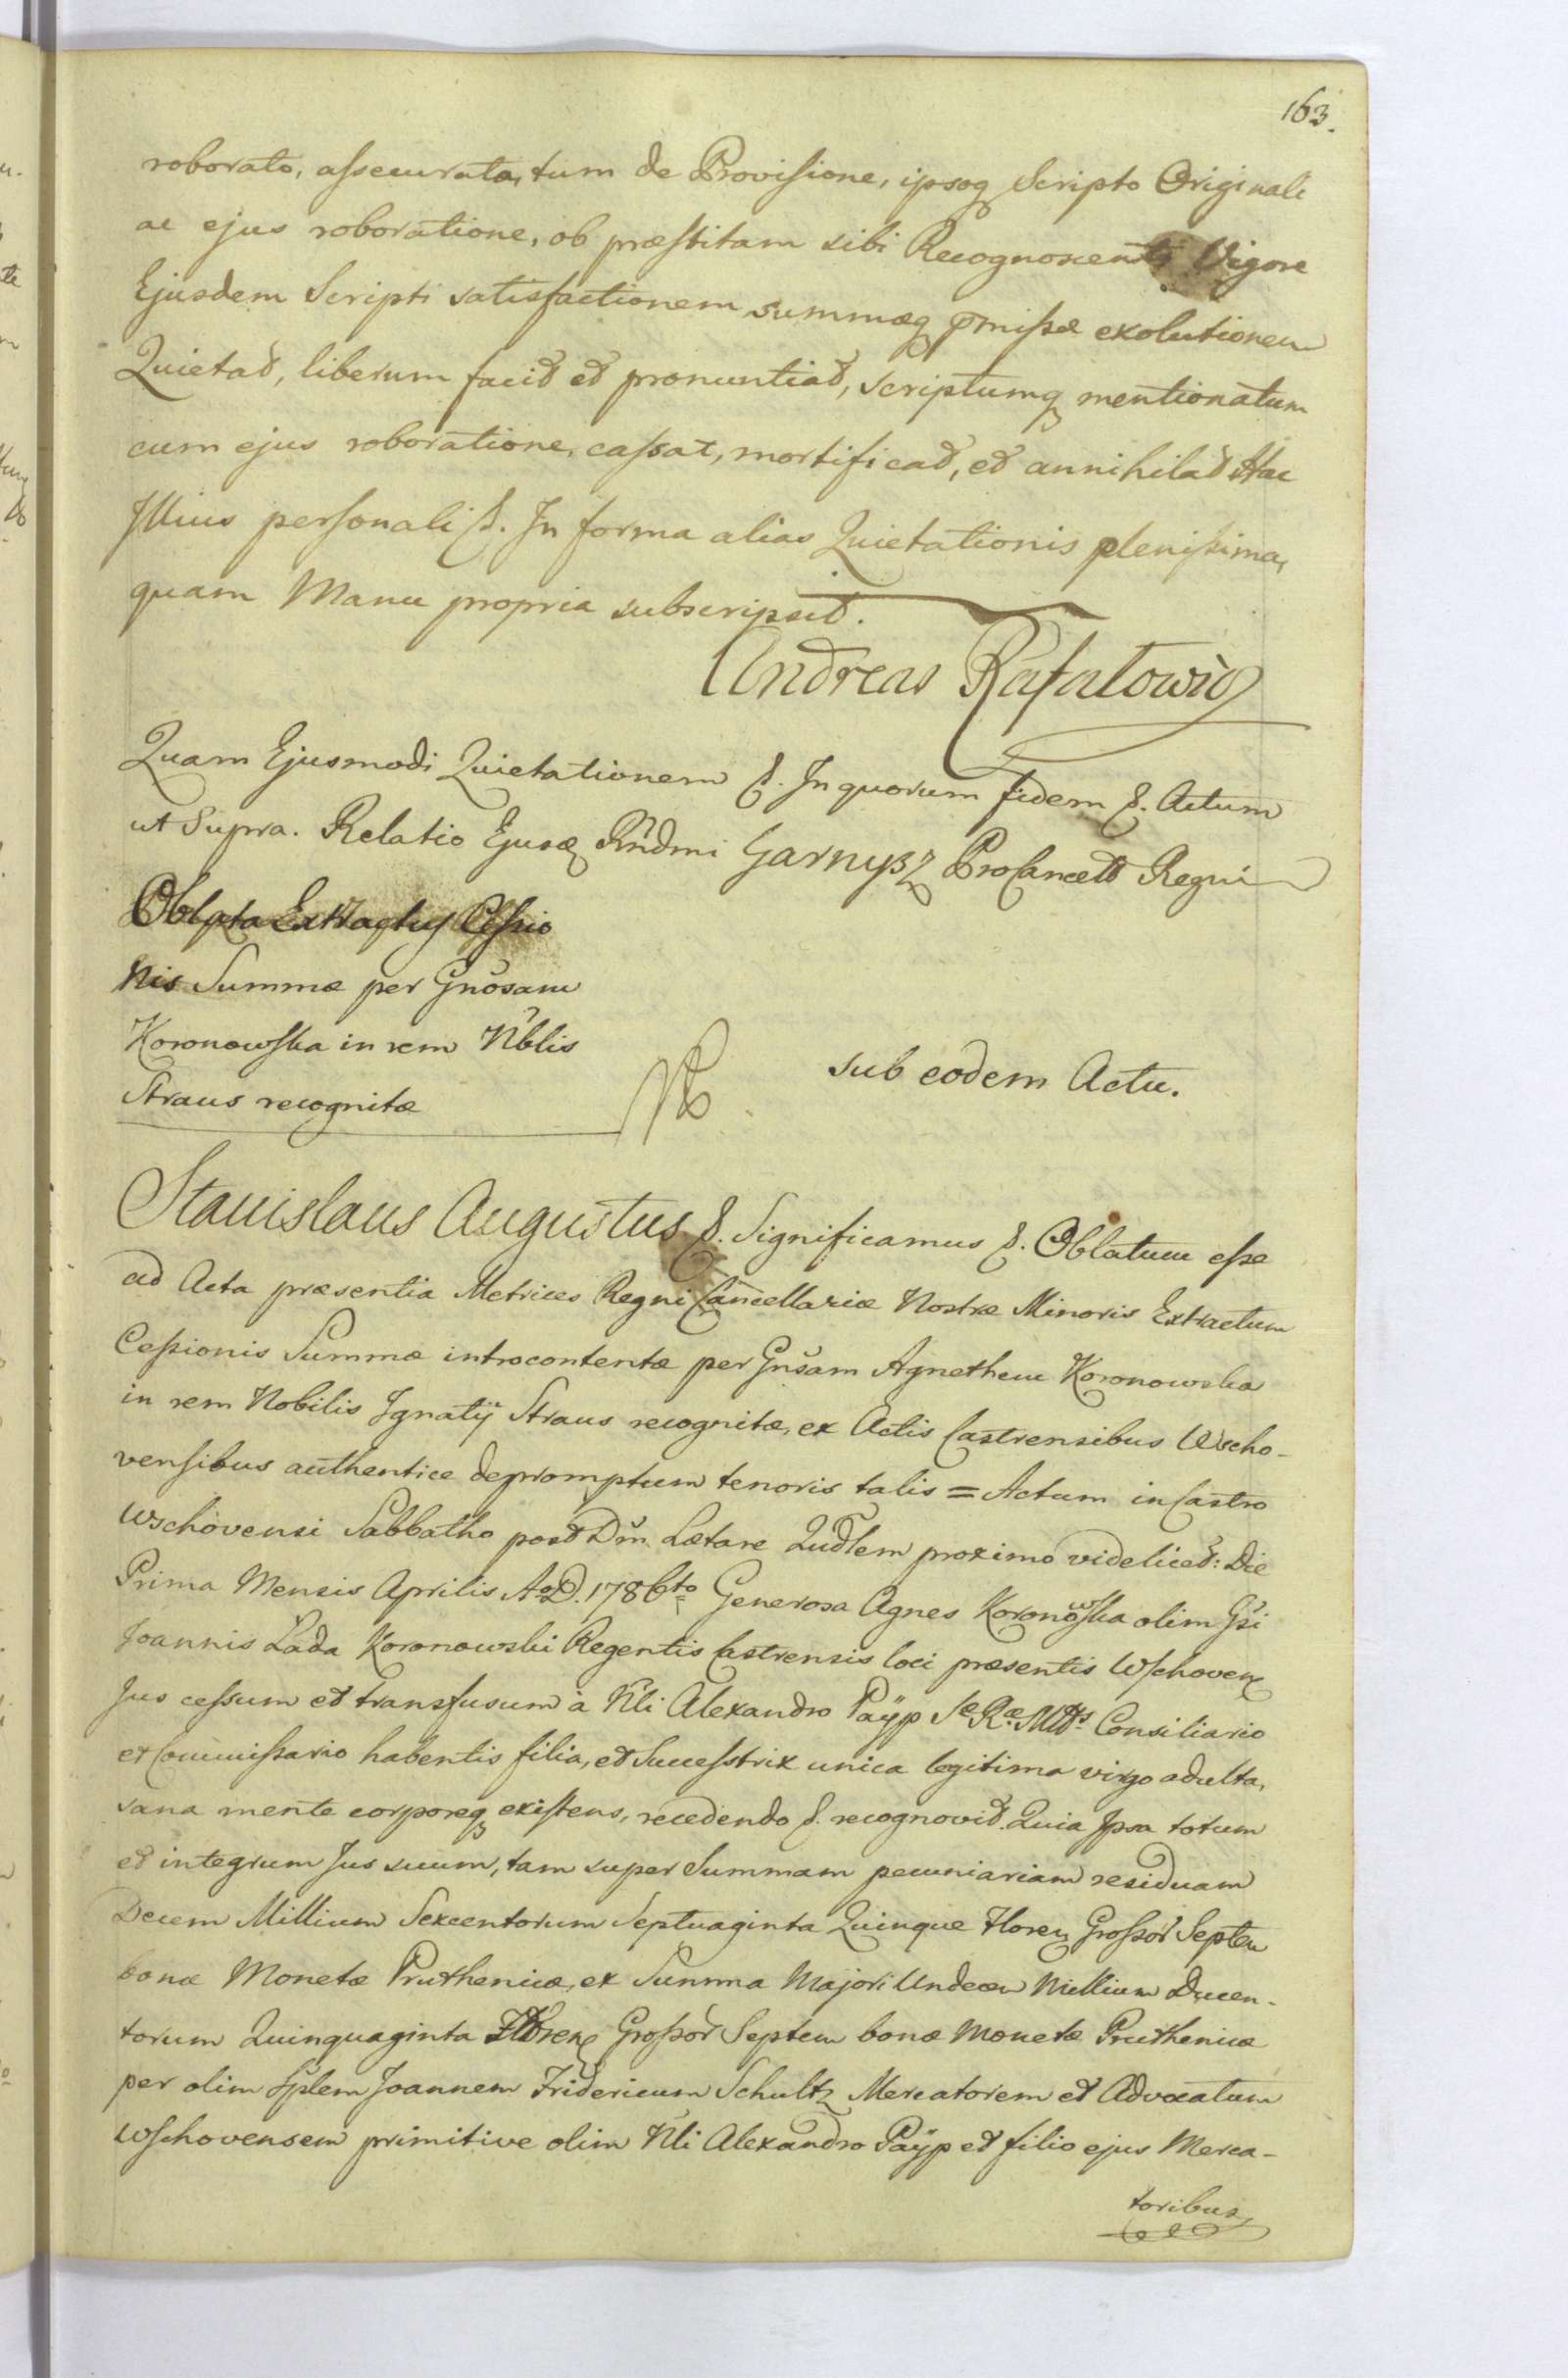 163.
roborato, assecurata, tum de Provisione, ipsoq Scripto Originali
ac ejus roboratione, ob præstitam sibi Recognoscenti Vigore
Ejusdem Scripti satisfactionem summæq pmissæ exolutionem
Quietat, liberum facit et pronuntiat, scriptumq mentionatum
cum ejus roboratione, cassat, mortificat, et annihilat Hac
Illius personali &. In forma alias Quietationis plenissima,
quam Manu propria subscripsit.
Andreas Rafałowicz
Quam Ejusmodi Quietationem &. In quorum fidem &. Actum
ut Supra. Relatio Ejusq Rndmi Garnysz ProCancell Regni
Oblata Extractus Cessio
nis Summæ per Gnosam
Koronowska in rem Nblis
Straus recognitæ
sub eodem Actu.
Stanislaus Augustus &. Significamus &. Oblatum esse
ad Acta præsentia Metrices Regni Cancellariæ Nostræ Minoris Extractum
Cessionis Summæ introcontentæ per Gnsam Agnethem Koronowska
in rem Nobilis Ignatij Straus recognitæ, ex Actis Castrensibus Wscho-
vensibus authentice depromptum tenoris talis = Actum in Castro
Wschovensi Sabbatho post Dm Lætare Qudlem proximo videlicet: Die
Prima Mensis Aprilis A.D. 1786to Generosa Agnes Koronowska olim Gsi
Joannis Łada Koronowski Regentis Castrensis loci præsentis Wschoven
Jus cessum et transfusum à Nli Alexandro Paÿp Sæ Ræ Mttis Consiliario
et Commissario habentis filia, et Successtrix unica legitima virgo adulta,
sana mente corporeq existens, recedendo &. recognovit. Quia Ipsa totum
et integrum Jus suum, tam super Summam pecuniariam residuam
Decem Millium Sexcentorum Septuaginta Quinque Floren Grossor Septem
bonæ Monetæ Pruthenicæ, ex Summa Majori Undecem Millium Ducen-
torum Quinquaginta Floren Grossor Septem bonæ Monetæ Pruthenicæ
per olim Splem Joannem Fridericum Schultz Mercatorem et Advocatum
Wschovensem primitive olim Nli Alexandro Paÿp et filio ejus Merca-
toribus